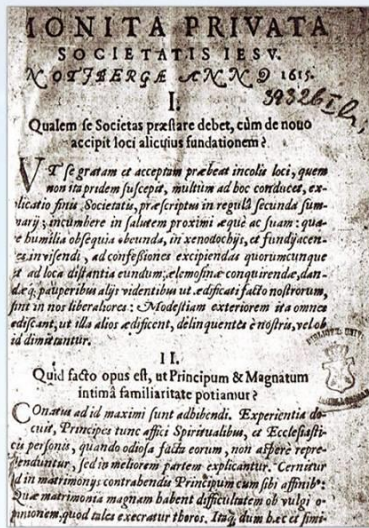 MONITA PRIVATA
SOCIETATIS IESV.
NOTJBERGÆ ANNO 1615.
39326 I
I.
Qualem se Societas præstare debet, cùm de nouo
accipit loci alicuius fundationem?
VT se gratam et acceptam præbeat incolis loci, quem
non ita pridem suscepit, multùm ad hoc conducet, ex-
plicatio finis, Societatis, præscriptus in regulâ secunda sum-
marij; incumbere in salutem proximi æquè ac suam: qua-
re humilia obsequia obeunda, in xenodochijs, et fundi jacen-
tes invisendi, ad confessiones excipiendas quorumcunque
et ad loca distantia eundum; elemosinæ conquirendæ, dan-
dæq; pauperibus alijs videntibus ut ædificati facto nostrorum,
sint in nos liberaliores: Modestiam exteriorem ita omnes
ediscant, ut illa alios ædificent, delinquentes è nostris, vel ob
id dimittantur.
II.
Quid facto opus est, ut Principum & Magnatum
intimâ familiaritate potiamur?
COnatus ad id maximi sunt adhibendi. Experientia do-
cuit, Principes tunc affici Spiritualibus, et Ecclesiasti-
cis personis, quando odiosa facta eorum, non aspere repre-
henduntur, sed in meliorem partem explicantur. Cernitur
id in matrimonijs contrahendis Principum cum sibi affinib9:
Quæ matrimonia magnam habent difficultatem ob vulgi o-
pinionem, quod tales execratur thoros. Itaq, dum hæc et simi-
BIBLIOT. UNIV.